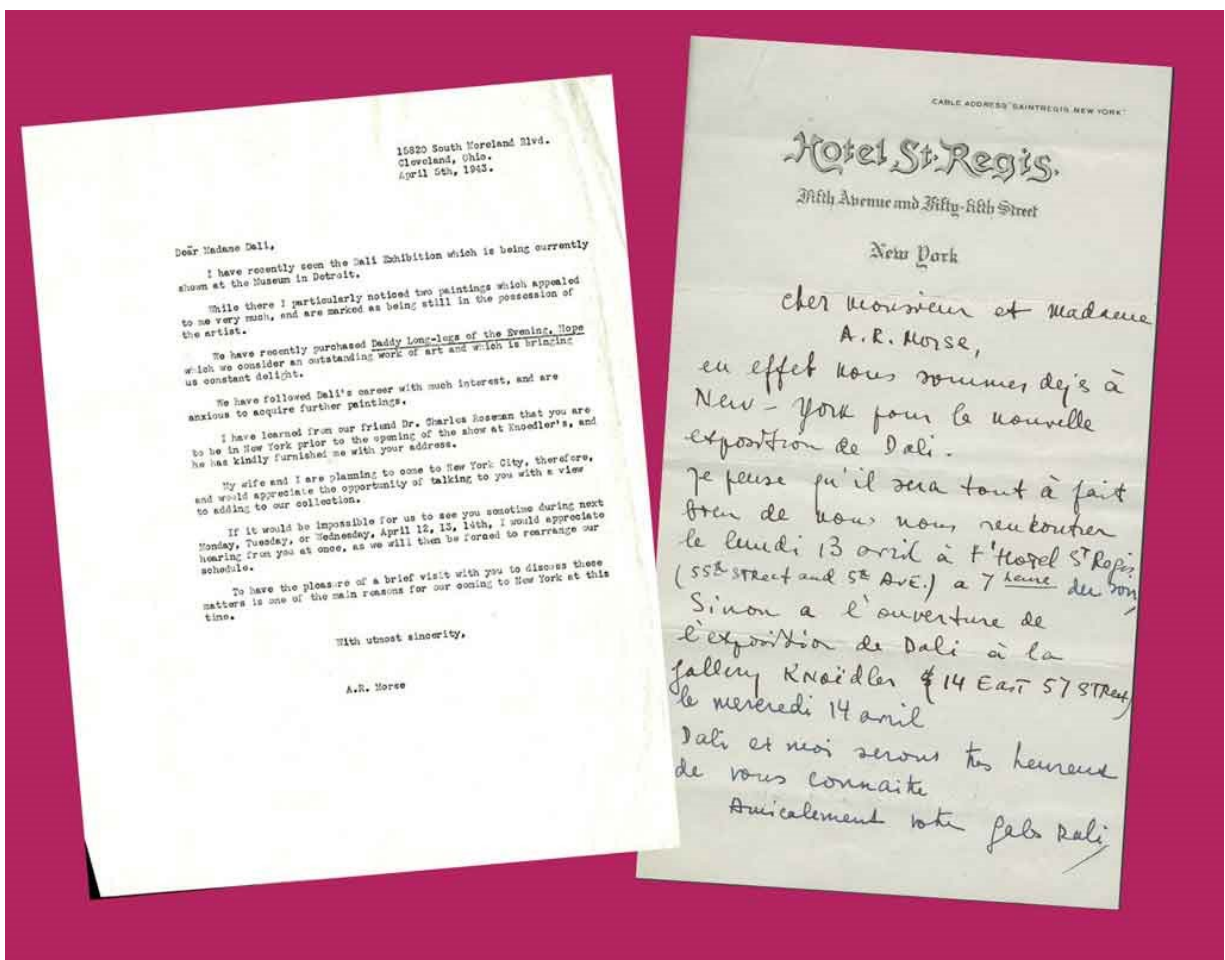 15820 South Moreland Blvd.
Cleveland, Ohio.
April 5th, 1943.
Dear Madame Dali,
I have recently seen the Dali Exhibition which is being currently
shown at the Museum in Detroit.
While there I particularly noticed two paintings which appealed
to me very much, and are marked as being still in the possession of
the artist.
We have recently purchased Daddy Long-legs of the Evening, Hope
which we consider an outstanding work of art and which is bringing
us constant delight.
We have followed Dali's career with much interest, and are
anxious to acquire further paintings.
I have learned from our friend Dr. Charles Roseman that you are
to be in New York prior to the opening of the show at Knoedler's, and
he has kindly furnished me with your address.
My wife and I are planning to come to New York City, therefore,
and would appreciate the opportunity of talking to you with a view
to adding to our collection.
If it would be impossible for us to see you sometime during next
Monday, Tuesday, or Wednesday, April 12, 13, 14th, I would appreciate
hearing from you at once, as we will then be forced to rearrange our
schedule.
To have the pleasure of a brief visit with you to discuss these
matters is one of the main reasons for our coming to New York at this
time.
With utmost sincerity,
A.R. Morse
CABLE ADDRESS "SAINTREGIS NEW YORK"
Hotel St. Regis.
Fifth Avenue and Fifty-fifth Street
New York
cher monsieur et madame
A.R. Morse,
en effet nous sommes dejà à
New-York pour la nouvelle
exposition de Dali.
Je pense qu'il sera tout à fait
bien de nous renkontrer
le lundi 13 avril à l'Hotel St Regis
(55th STReet and 5th AvE.) a 7 heure du soir,
Sinon a l'ouverture de
l'exposition de Dali à la
gallery KNoïdler 14 EasT 57 STReet,
le mercredi 14 avril
Dali et moi serons très heureux
de vous connaite
Amicalement votre Gala Dali